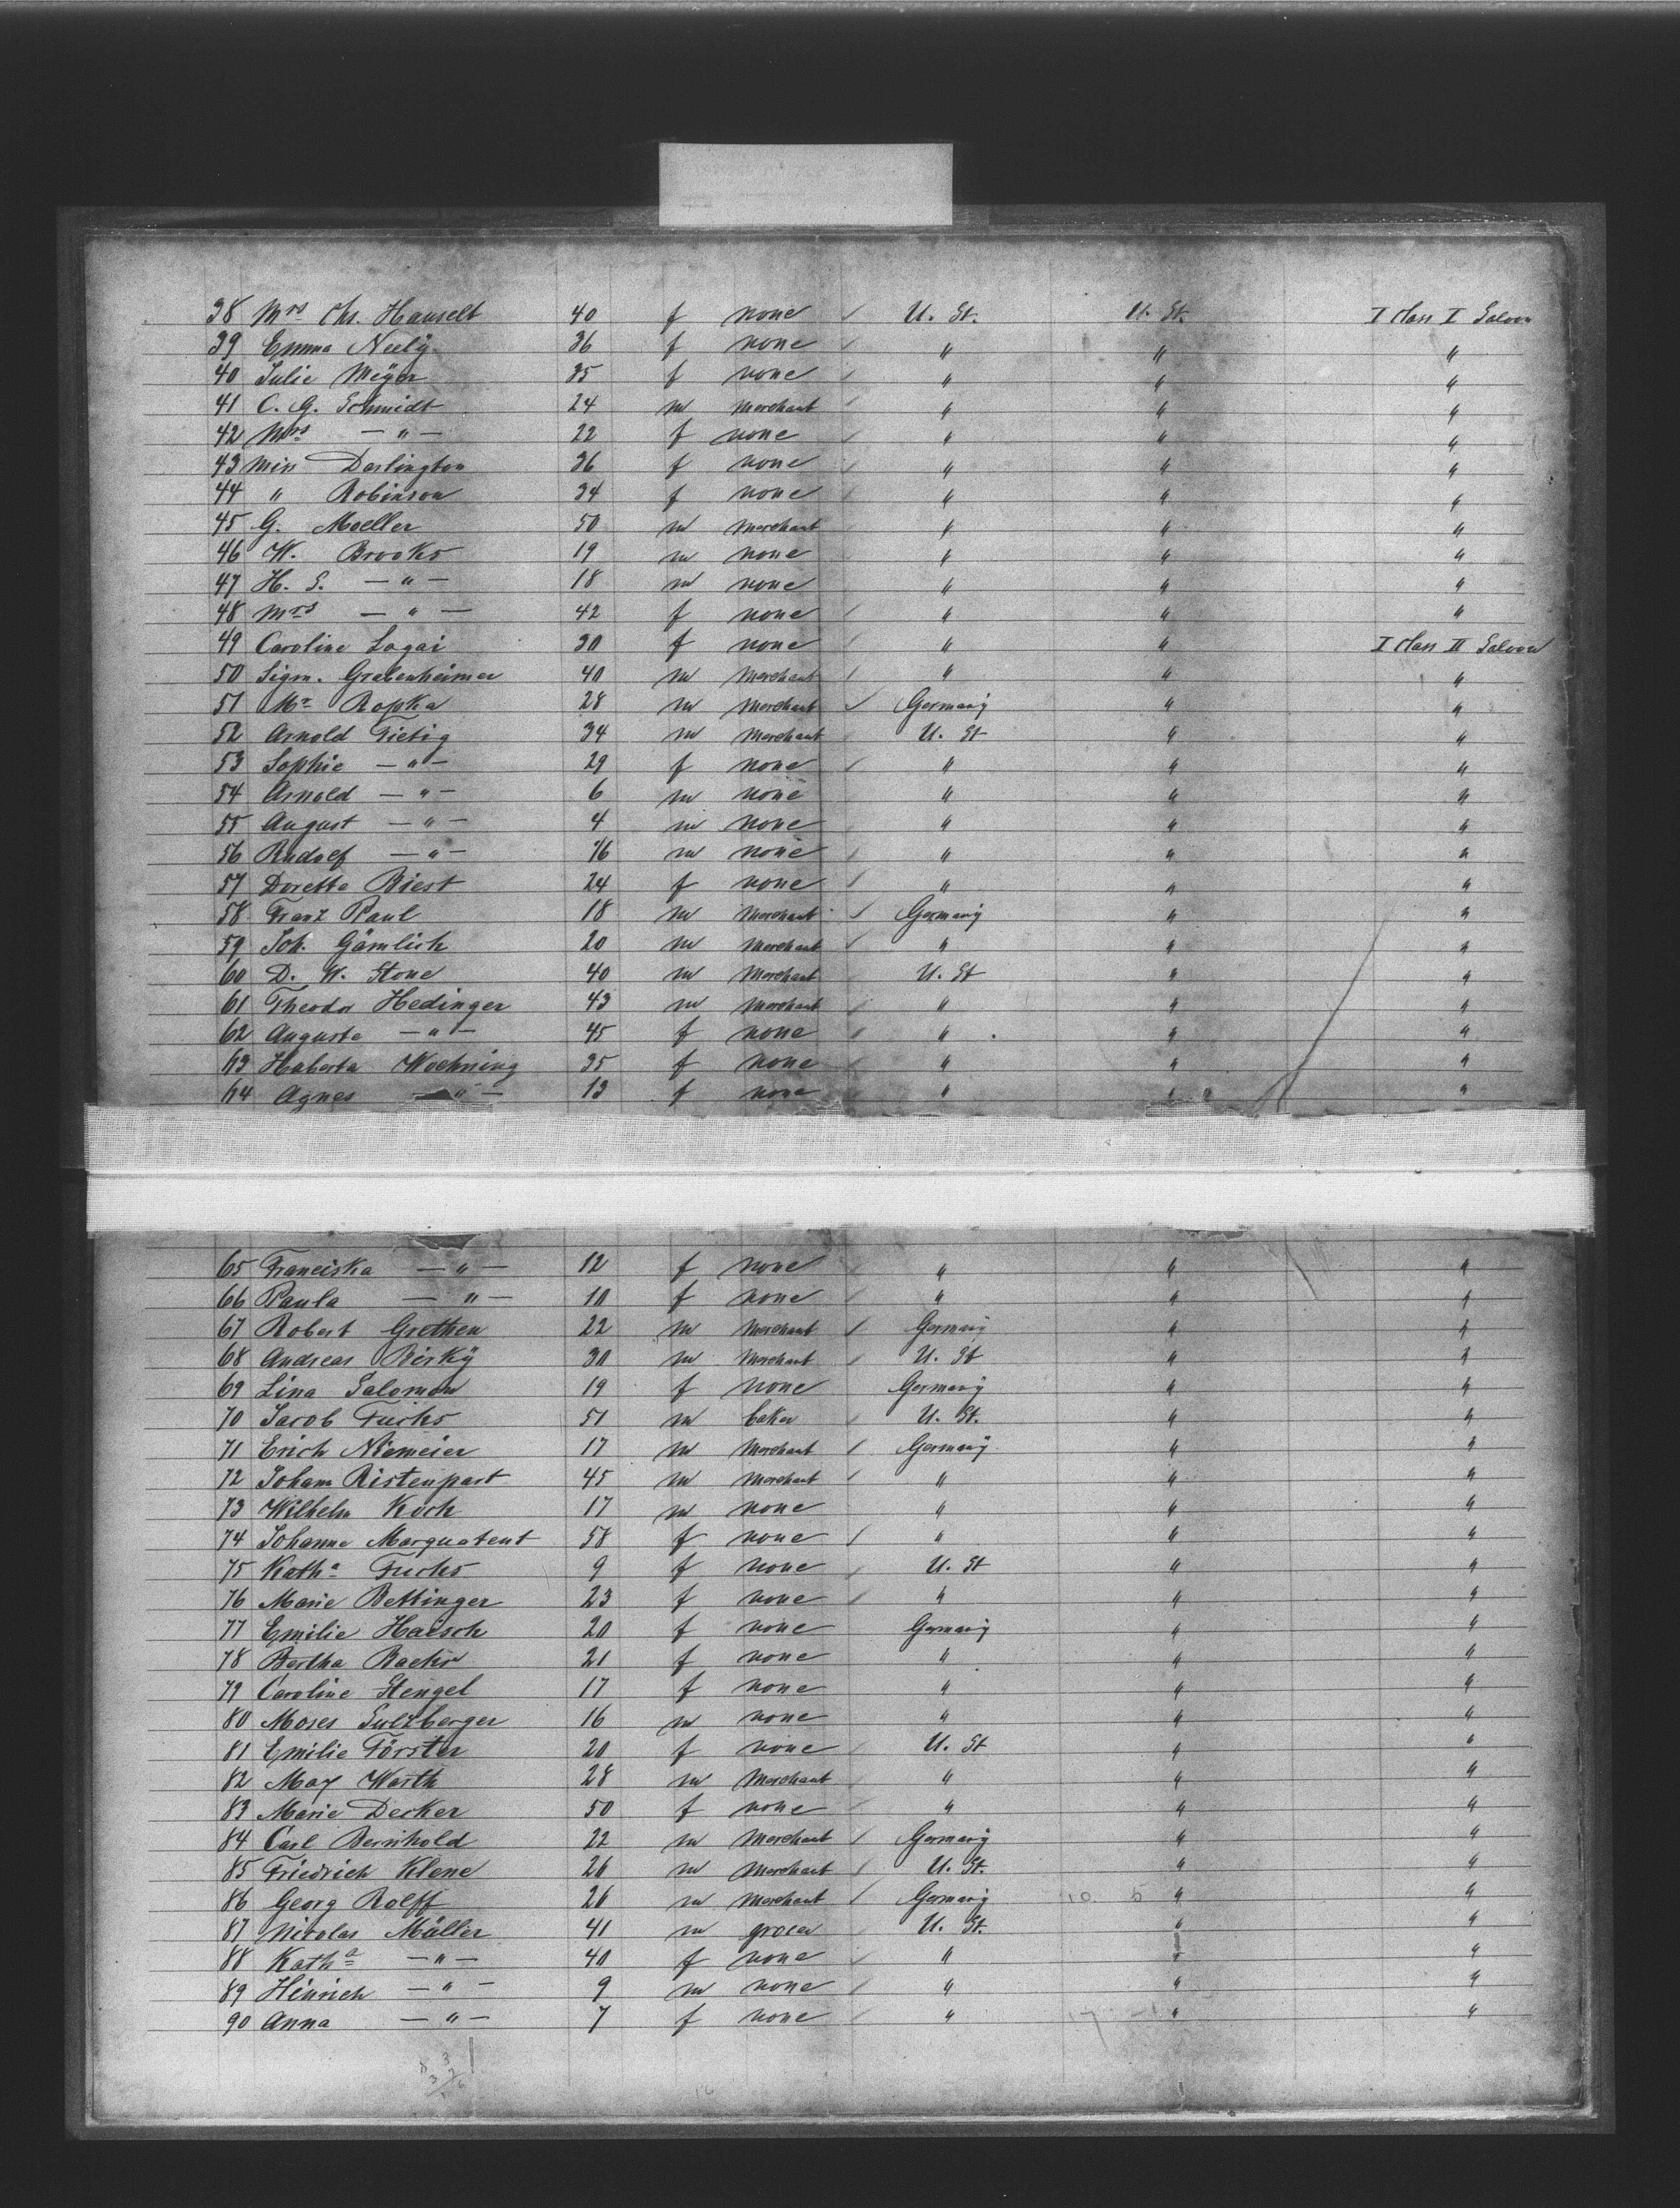 38 Mrs Chs. Hauselt 40 f none U. St. U. St. I Class I Saloon
39 Emma Neely 36 f none " " "
40 Julie Meÿer 35 f none " " "
41 C. G. Schmidt 24 m merchant " " "
42 Mrs — " — 22 f none " " "
43 Miss Darlington 36 f none " " "
44 " Robinson 34 f none " " "
45 G. Moeller 50 m merchant " " "
46 W. Brooks 19 m none " " "
47 H. S. — " — 18 m none " " "
48 Mrs — " — 42 f none " " "
49 Caroline Lagai 30 f none " " I Class II Saloon
50 Sigm. Grabenheimer 40 m merchant " " "
51 Mr Ropka 28 m merchant Germany " "
52 Arnold Tietig 34 m merchant U. St " "
53 Sophie — " — 29 f none " " "
54 Arnold — " — 6 m none " " "
55 August — " — 4 m none " " "
56 Rudolf — " — 16 m none " " "
57 Dorette Biest 24 f none " " "
58 Franz Paul 18 m merchant Germany " "
59 Joh. Gämlich 20 m merchant " " "
60 D. W. Stone 40 m merchant U. St " "
61 Theodor Hedinger 43 m merchant " " "
62 Auguste — " — 45 f none " " "
63 Huberta Woehning 35 f none " " "
64 Agnes — " — 13 f none " " "
65 Franciska — " — 12 f none " " "
66 Paula — " — 10 f none " " "
67 Robert Grethen 22 m merchant Germany " "
68 Andreas Birkÿ 30 m merchant U. St " "
69 Lina Salomon 19 f none Germany " "
70 Jacob Fuchs 51 m baker U. St. " "
71 Erich Niemeier 17 m merchant Germany " "
72 Johann Ristenpart 45 m merchant " " "
73 Wilhelm Koch 17 m none " " "
74 Johanne Marquatent 58 f none " " "
75 Katha Fuchs 9 f none U. St " "
76 Marie Bettinger 23 f none " " "
77 Emilie Haisch 20 f none Germany " "
78 Bertha Bachr 21 f none " " "
79 Caroline Stengel 17 f none " " "
80 Moses Sulzberger 16 m none " " "
81 Emilie Förster 20 f none U. St " "
82 Max Warth 28 m merchant " " "
83 Marie Decker 50 f none " " "
84 Carl Bernhold 22 m merchant Germany " "
85 Friedrich Klene 26 m merchant U. St. " "
86 Georg Rolff 26 m merchant Germany " "
87 Nicolas Müller 41 m grocer U. St. " "
88 Katha — " — 40 f none " " "
89 Hinrich — " — 9 m none " " "
90 Anna — " — 7 f none " " "